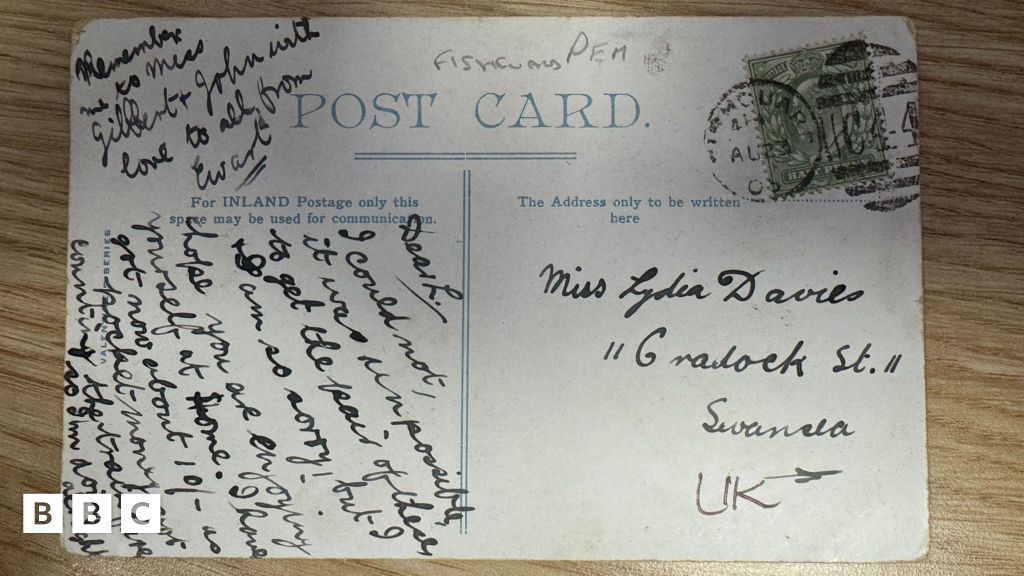 Remember
me to Miss
Gilbert + John with
love to all from
Ewart
FISHGUARD PEM
POST CARD.
For INLAND Postage only this
space may be used for communication.
The Address only to be written
here
SERIES
Dear L.
I could not,
it was impossible,
to get the pair of these
but I
am so sorry! I
hope you are enjoying
yourself at home. I have
got now about 10/- as
pocket money
counting the train fare
so I'm not
AU
Miss Lydia Davies
"11 Cradock St."
Swansea
UK
BBC